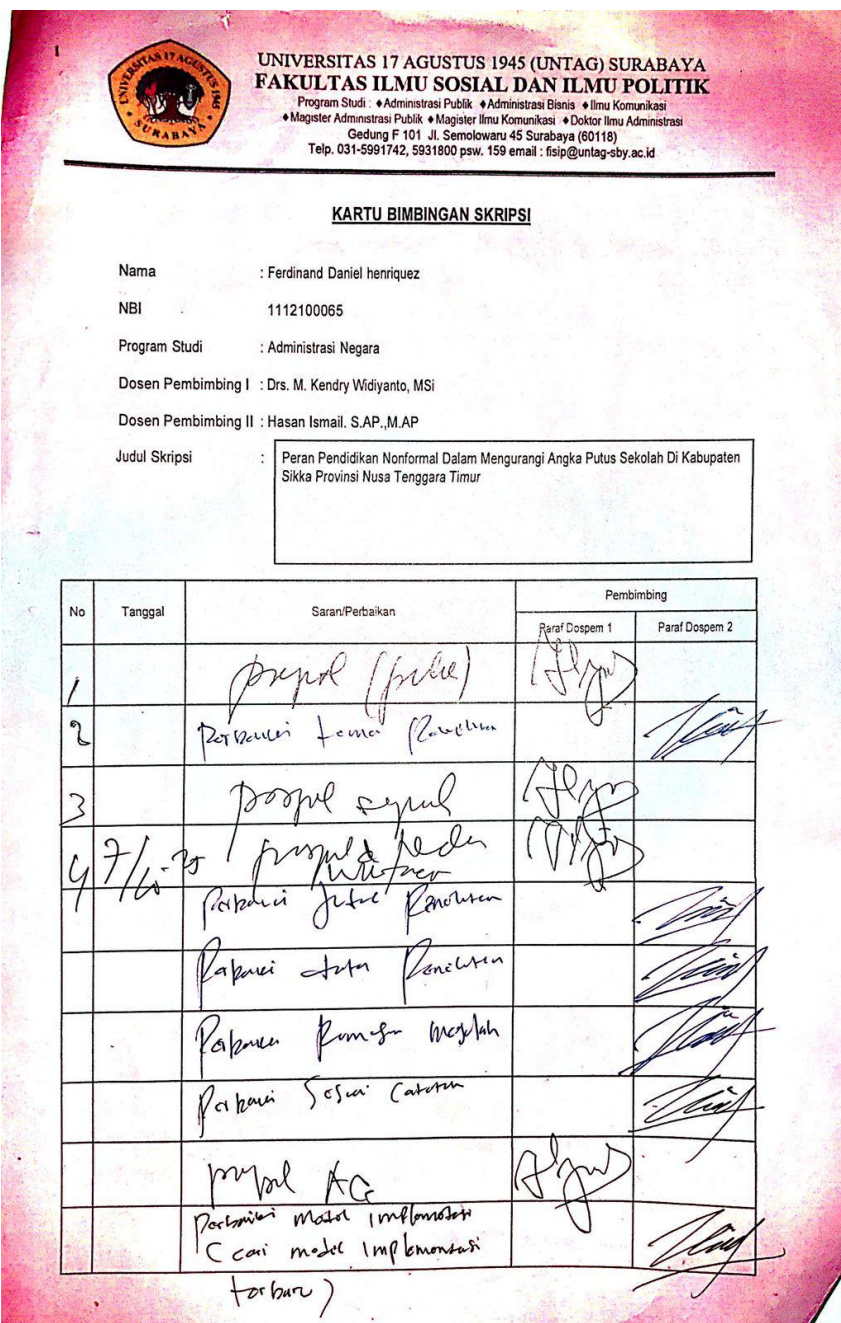 1
UNIVERSITAS 17 AGUSTUS 1945
SURABAYA
UNIVERSITAS 17 AGUSTUS 1945 (UNTAG) SURABAYA
FAKULTAS ILMU SOSIAL DAN ILMU POLITIK
Program Studi : ♦Administrasi Publik ♦Administrasi Bisnis ♦Ilmu Komunikasi
♦Magister Administrasi Publik ♦Magister Ilmu Komunikasi ♦Doktor Ilmu Administrasi
Gedung F 101 Jl. Semolowaru 45 Surabaya (60118)
Telp. 031-5991742, 5931800 psw. 159 email : fisip@untag-sby.ac.id
KARTU BIMBINGAN SKRIPSI
Nama : Ferdinand Daniel henriquez
NBI 1112100065
Program Studi : Administrasi Negara
Dosen Pembimbing I : Drs. M. Kendry Widiyanto, MSi
Dosen Pembimbing II : Hasan Ismail. S.AP.,M.AP
Judul Skripsi : Peran Pendidikan Nonformal Dalam Mengurangi Angka Putus Sekolah Di Kabupaten
Sikka Provinsi Nusa Tenggara Timur
No Tanggal Saran/Perbaikan Pembimbing
Paraf Dospem 1 Paraf Dospem 2
1
2 Perbaiki
3
4
Perbaiki Penelitian
Perbaiki Penelitian
Perbaiki Rumusan Masalah
Perbaiki Sesuai Catatan
Perbaiki Model Implementasi
( cari model Implementasi
terbaru )